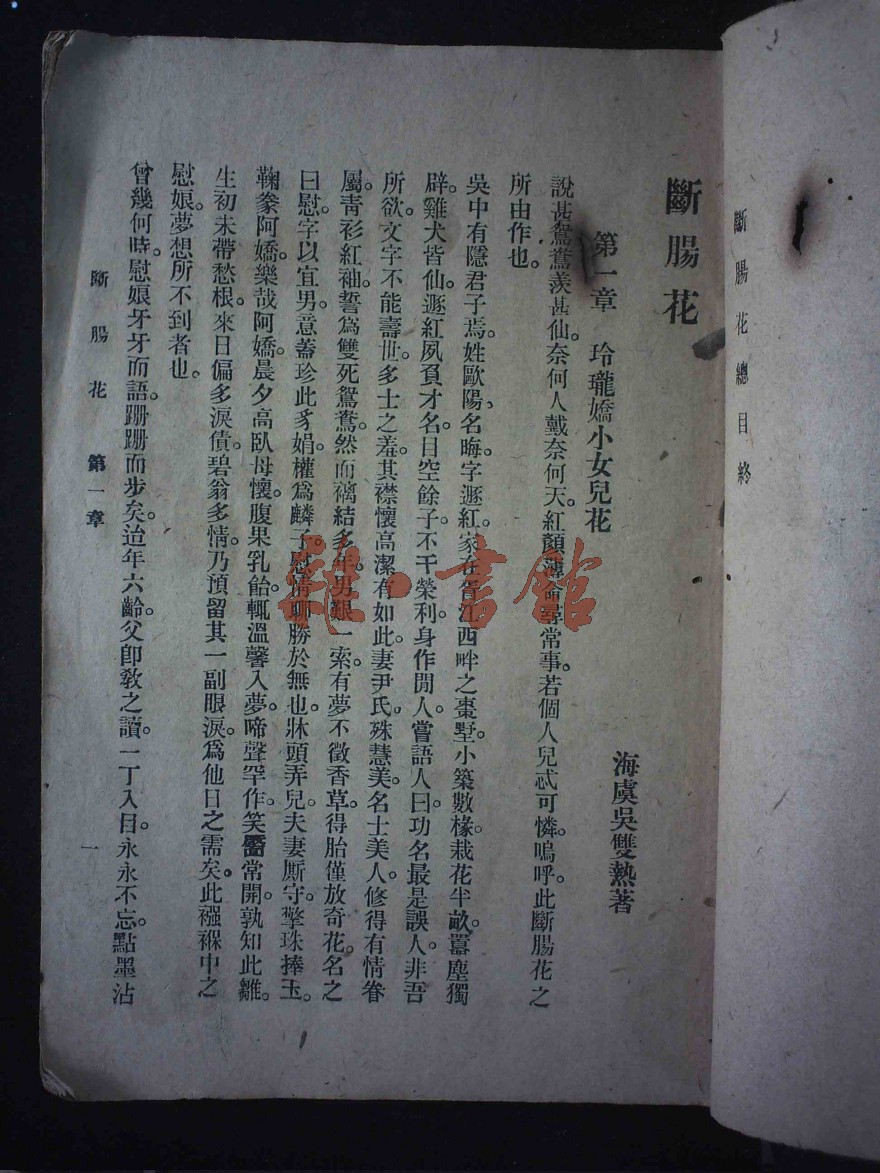 斷腸花總目終
斷腸花
第一章　玲瓏嬌小女兒花
海虞吳雙熱著
說甚鴛鴦羨甚仙。奈何人戴奈何天。紅顏薄命尋常事。若個人兒忒可憐。嗚呼。此斷腸花之
所由作也。
吳中有隱君子焉。姓歐陽。名晦。字遯紅。家在胥江西畔之棗墅。小築數椽。栽花半畝。囂塵獨
辟。雞犬皆仙。遯紅夙負才名。目空餘子。不干榮利。身作閒人。嘗語人曰。功名最是誤人。非吾
所欲。文字不能壽世。多士之羞。其襟懷高潔。有如此。妻尹氏。殊慧美。名士美人。修得有情眷
屬。青衫紅袖。誓爲雙死鴛鴦。然而褵結多年。男艱一索。有夢不徵香草。得胎僅放奇花。名之
曰慰。字以宜男。意蓋珍此豸娟。權爲麟子。慰情聊勝於無也。牀頭弄兒。夫妻厮守。擎珠捧玉。
鞠豢阿嬌。樂哉阿嬌。晨夕高臥母懷。腹果乳飴。輒溫馨入夢。啼聲罕作。笑靨常開。孰知此雛。
生初未帶愁根。來日偏多淚債。碧翁多情。乃預留其一副眼淚。爲他日之需矣。此襁褓中之
慰娘。夢想所不到者也。
曾幾何時。慰娘牙牙而語。跚跚而步矣。迨年六齡。父卽敎之讀。一丁入目。永永不忘。點墨沾
斷腸花　第一章
一
雜·書館